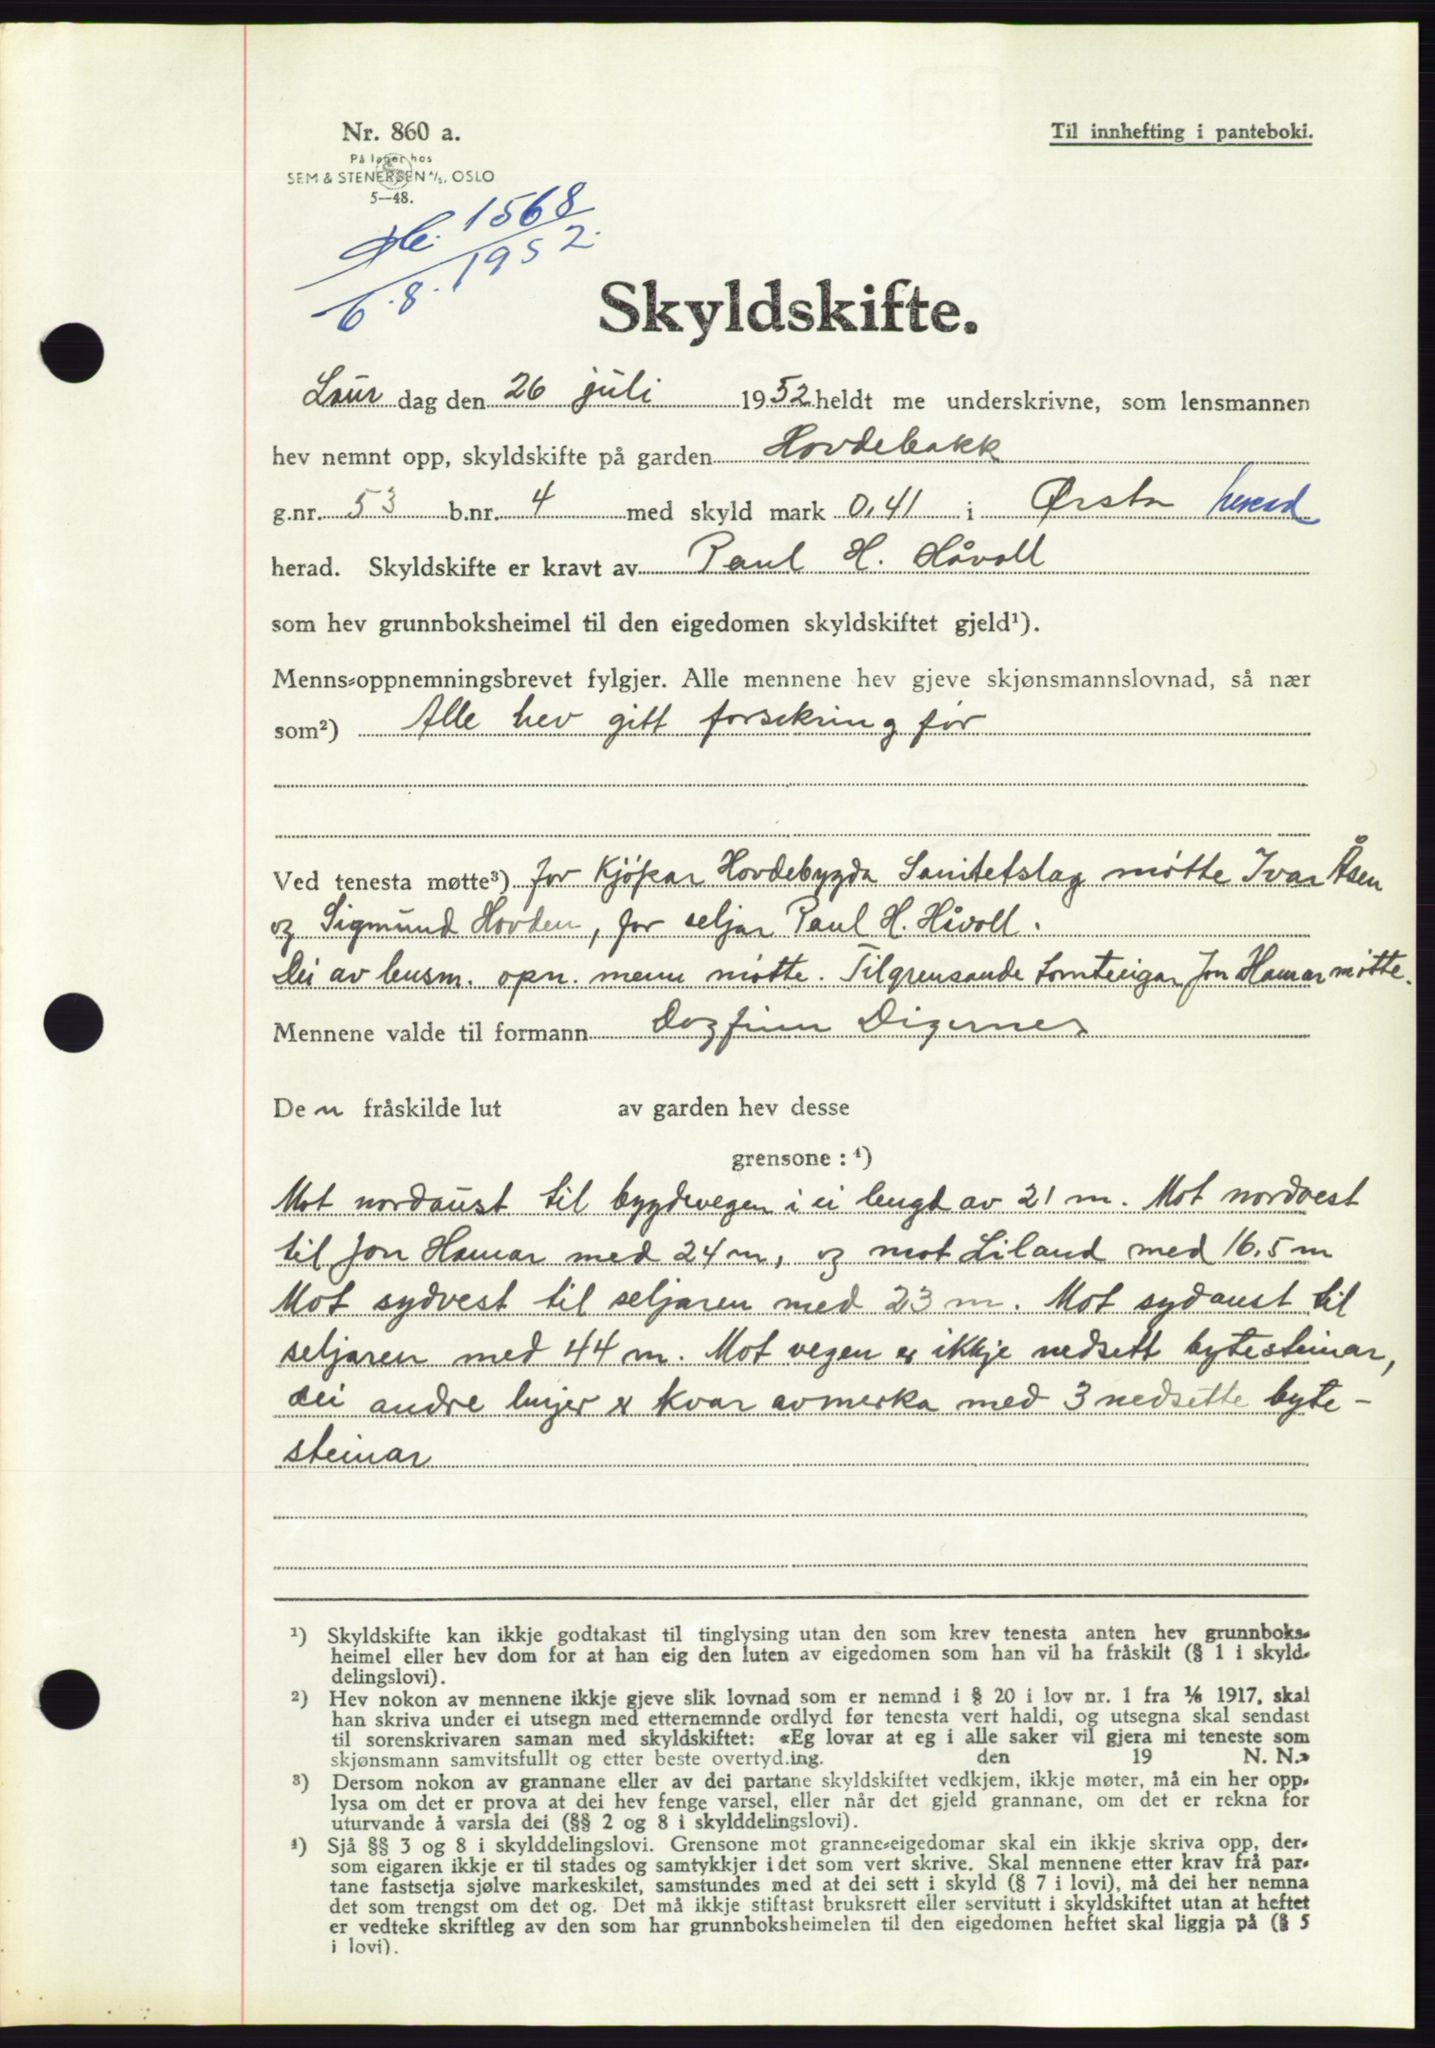 Nr. 860 a.
Til innhefting i panteboki.
På lager hos
SEM & STENERSEN A/S, OSLO
5—48.
1568
6.8.1952.
Skyldskifte.
Laur dag den 26 juli 1952 heldt me underskrivne, som lensmannen
hev nemnt opp, skyldskifte på garden Hovdebakk
g.nr. 53 b.nr. 4 med skyld mark 0,41 i Ørsta herad
herad. Skyldskifte er kravt av Paul H. Håvoll
som hev grunnboksheimel til den eigedomen skyldskiftet gjeld¹).
Menns-oppnemningsbrevet fylgjer. Alle mennene hev gjeve skjønsmannslovnad, så nær
som²) Alle hev gitt forsikring før
Ved tenesta møtte³) for kjøpar Hovdebygda Sanitetslag møtte Ivar Åsen
og Sigmund Hovden, for seljar Paul H. Håvoll.
Dei av lensm. opn. menn møtte. Tilgrensande tomteeigar Jon Hamar møtte.
Mennene valde til formann Dagfinn Digernes
De n fråskilde lut av garden hev desse
grensone : ⁴)
Mot nordaust til bygdevegen i ei lengd av 21 m. Mot nordvest
til Jon Hamar med 24 m, og mot Liland med 16,5 m
Mot sydvest til seljaren med 23 m. Mot sydaust til
seljaren med 44 m. Mot vegen er ikkje nedsett bytesteinar,
dei andre linjer er kvar avmerka med 3 nedsette byte-
steinar
¹) Skyldskifte kan ikkje godtakast til tinglysing utan den som krev tenesta anten hev grunnboks-
heimel eller hev dom for at han eig den luten av eigedomen som han vil ha fråskilt (§ 1 i skyld-
delingslovi).
²) Hev nokon av mennene ikkje gjeve slik lovnad som er nemnd i § 20 i lov nr. 1 fra 1/6 1917, skal
han skriva under ei utsegn med etternemnde ordlyd før tenesta vert haldi, og utsegna skal sendast
til sorenskrivaren saman med skyldskiftet: «Eg lovar at eg i alle saker vil gjera mi teneste som
skjønsmann samvitsfullt og etter beste overtyding. den 19 N. N.»
³) Dersom nokon av grannane eller av dei partane skyldskiftet vedkjem, ikkje møter, må ein her opp-
lysa om det er prova at dei hev fenge varsel, eller når det gjeld grannane, om det er rekna for
uturvande å varsla dei (§§ 2 og 8 i skylddelingslovi).
⁴) Sjå §§ 3 og 8 i skylddelingslovi. Grensone mot granne-eigedomar skal ein ikkje skriva opp, der-
som eigaren ikkje er til stades og samtykkjer i det som vert skrive. Skal mennene etter krav frå par-
tane fastsetja sjølve markeskilet, samstundes med at dei sett i skyld (§ 7 i lovi), må dei her nemna
det som trengst om det og. Det må ikkje stiftast bruksrett eller servitutt i skyldskiftet utan at heftet
er vedteke skriftleg av den som har grunnboksheimelen til den eigedomen heftet skal liggja på (§ 5
i lovi).